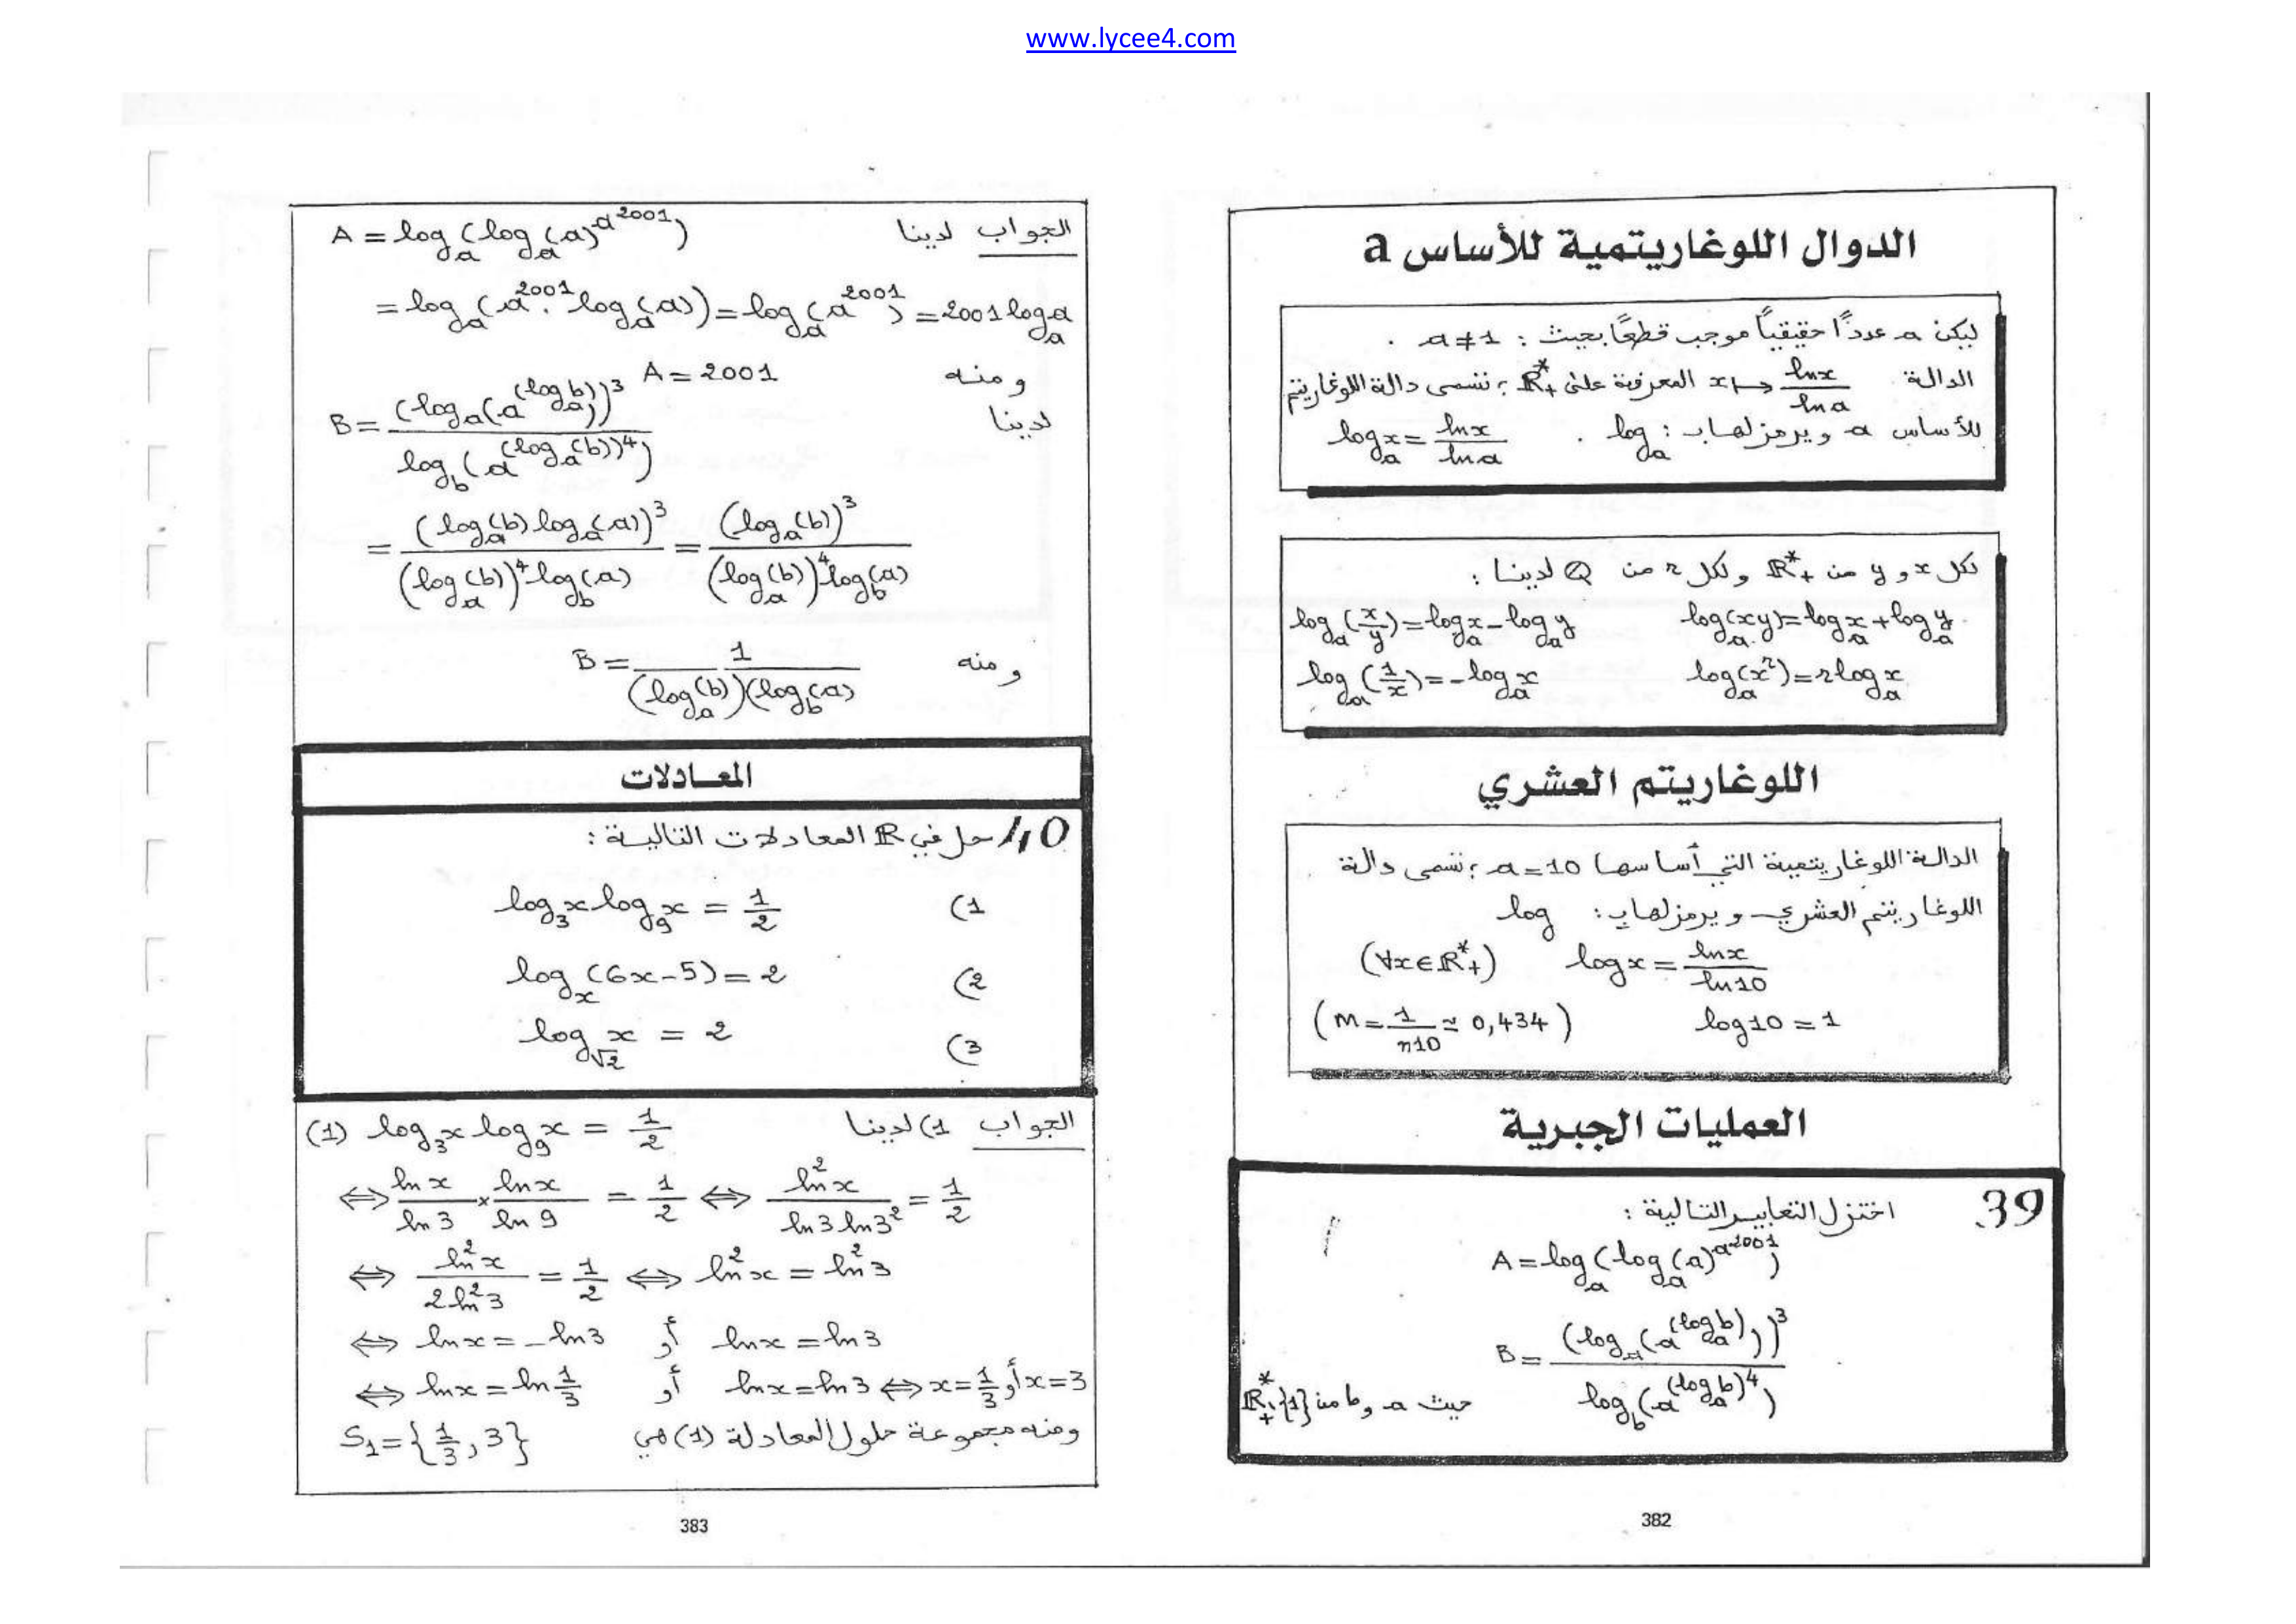 www.lycee4.com
الدوال اللوغاريتمية للأساس a
ليكن a عددًا حقيقياً موجب قطعًا بحيث : a ≠ 1 .
الدالة x ↦ lnx/lna المعرفة على ℝ*₊ ؛ تسمى دالة اللوغاريتم
للأساس a ويرمز لها بـ : logₐ . logₐx = lnx/lna
لكل x و y من ℝ*₊ ولكل r من Q لدينا :
logₐ(xy) = logₐx + logₐy logₐ(x/y) = logₐx - logₐy
logₐ(xʳ) = r logₐx logₐ(1/x) = -logₐx
اللوغاريتم العشري
الدالة اللوغاريتمية التي أساسها a = 10 ؛ تسمى دالة
اللوغاريتم العشري ويرمز لها بـ : log
(∀x ∈ ℝ*₊) logx = lnx/ln10
log10 = 1 (M = 1/n10 ≃ 0,434)
العمليات الجبرية
39 اختزل التعابير التالية :
A = logₐ(logₐ(a)^a^2001)
B = (logₐ(a^(logₐb)))³ / log_b(a^(logₐb)^4)
حيث a و b من ℝ*₊\{1}
382
الجواب لدينا A = logₐ(logₐ(a)^a^2001)
= logₐ(a^2001 . logₐ(a)) = logₐ(a^2001) = 2001 logₐa
ومنه A = 2001
لدينا B = (logₐ(a^(logₐb)))³ / log_b(a^(logₐ(b))^4)
= (logₐ(b) logₐ(a))³ / (logₐ(b))⁴ log_b(a) = (logₐ(b))³ / (logₐ(b))⁴ log_b(a)
ومنه B = 1 / (logₐ(b))(log_b(a)
المعادلات
40 حل في ℝ المعادلات التالية :
1) log₃x log₉x = 1/2
2) log_x(6x-5) = 2
3) log_√2 x = 2
الجواب 1) لدينا (1) log₃x log₉x = 1/2
⟺ lnx/ln3 × lnx/ln9 = 1/2 ⟺ ln²x / ln3 ln3² = 1/2
⟺ ln²x / 2ln²3 = 1/2 ⟺ ln²x = ln²3
⟺ lnx = -ln3 أو lnx = ln3
⟺ lnx = ln 1/3 أو lnx = ln3 ⟺ x = 1/3 أو x = 3
ومنه مجموعة حلول المعادلة (1) هي S₁ = {1/3, 3}
383